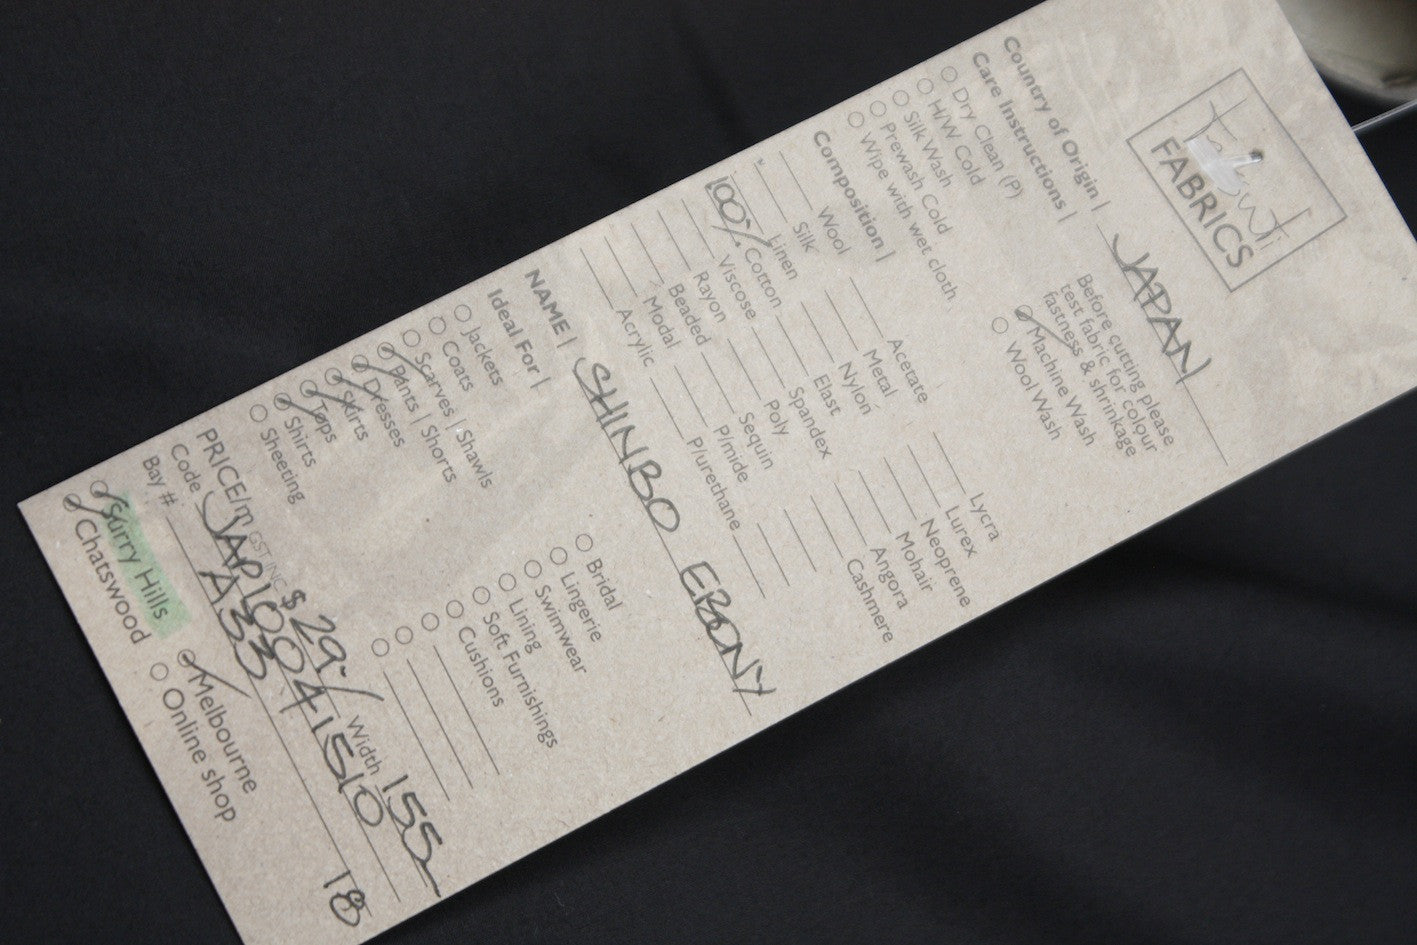 FABRICS
Country of Origin | JAPAN
Care Instructions |
Dry Clean (P)
H/W Cold
Silk Wash
Prewash Cold
Wipe with wet cloth
Before cutting please
test fabric for colour
fastness & shrinkage
Machine Wash
Wool Wash
Composition |
Wool
Silk
Linen
100% Cotton
Viscose
Rayon
Beaded
Modal
Acrylic
Acetate
Metal
Nylon
Elast
Spandex
Poly
Sequin
P/mide
P/urethane
Lycra
Lurex
Neoprene
Mohair
Angora
Cashmere
NAME | SHINBO EBONY
Ideal For |
Jackets
Coats
Scarves | Shawls
Pants | Shorts
Dresses
Skirts
Tops
Shirts
Sheeting
Bridal
Lingerie
Swimwear
Lining
Soft Furnishings
Cushions
PRICE/m GST INC $ 29- / Width 155
Code JAP10041510
Bay # A33 18
Surry Hills
Chatswood
Melbourne
Online shop